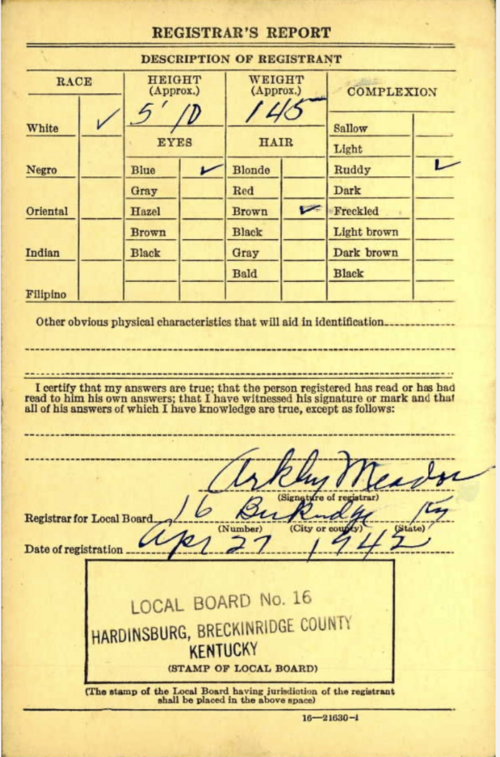 REGISTRAR'S REPORT
DESCRIPTION OF REGISTRANT
RACE
HEIGHT (Approx.)
WEIGHT (Approx.)
COMPLEXION
5' 10
145
White ✓
EYES
HAIR
Sallow
Light
Negro
Blue ✓
Blonde
Ruddy ✓
Gray
Red
Dark
Oriental
Hazel
Brown ✓
Freckled
Brown
Black
Light brown
Indian
Black
Gray
Dark brown
Bald
Black
Filipino
Other obvious physical characteristics that will aid in identification
I certify that my answers are true; that the person registered has read or has had
read to him his own answers; that I have witnessed his signature or mark and that
all of his answers of which I have knowledge are true, except as follows:
Meador
(Signature of registrar)
Registrar for Local Board 16 Ky
(Number) (City or county) (State)
Date of registration Apr 27 1942
LOCAL BOARD No. 16
HARDINSBURG, BRECKINRIDGE COUNTY
KENTUCKY
(STAMP OF LOCAL BOARD)
(The stamp of the Local Board having jurisdiction of the registrant
shall be placed in the above space)
16—21630-1